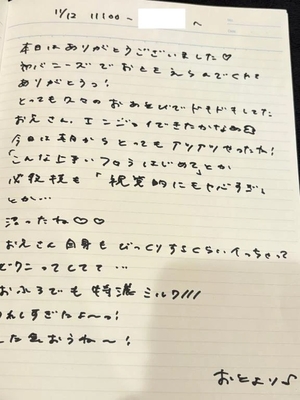 11/12 11:00 - ~
本日はありがとうございました♡
初バニーズでおとをえらんでくれて
ありがとうっ!
とっても久々のおあそびでドキドキしてた
おえさん、エンジョイできたかなぁ
今日は朝からとってもアツアツやったね!
「こんな上手いフェラはじめて」とか
「視覚的にもやばすぎ」
とか…
沼ったね♡♡
おえさん自身もびっくりするくらいイっちゃって
ビクビクってしてて…
おふろでも特濃ミルク///
うれしすぎたよ〜っ!
また会おうね〜!
おとより♪